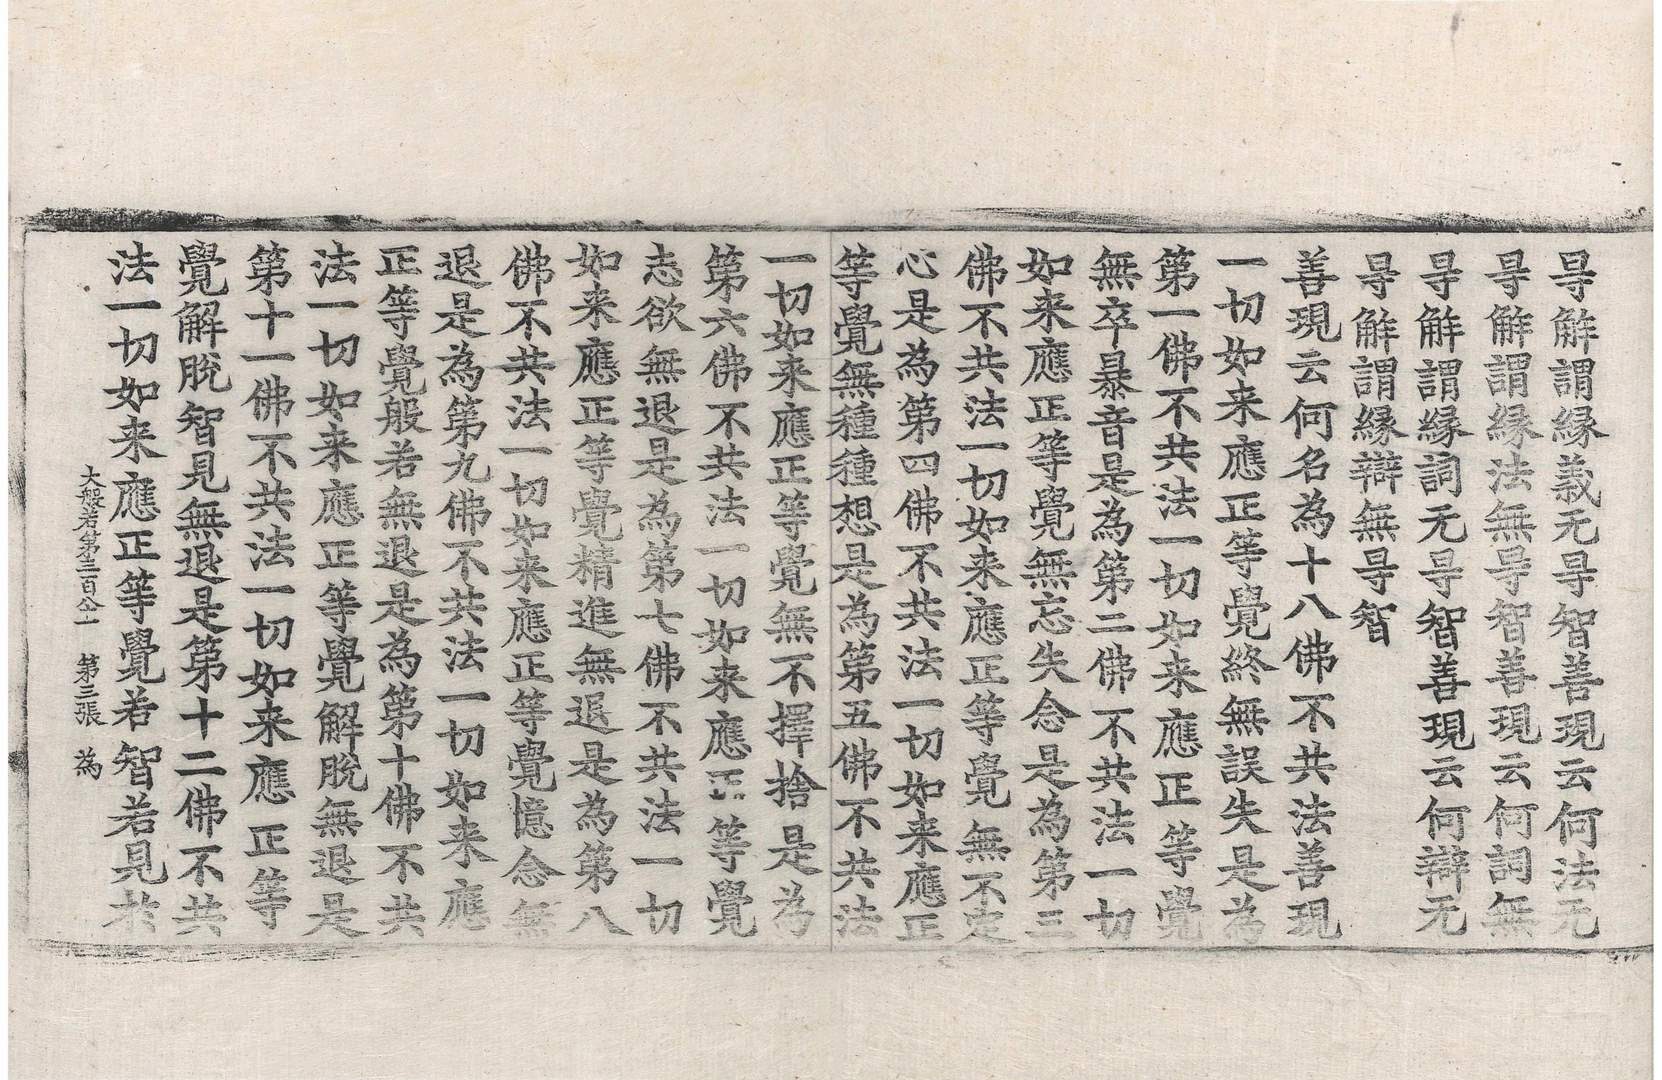 㝵解謂縁義无㝵智善現云何法无
㝵解謂縁法無㝵智善現云何詞無
㝵解謂縁詞无㝵智善現云何辯无
㝵解謂縁辯無㝵智
善現云何名為十八佛不共法善現
一切如来應正等覺終無誤失是為
第一佛不共法一切如来應正等覺
無卒暴音是為第二佛不共法一切
如来應正等覺無忘失念是為第三
佛不共法一切如来應正等覺無不定
心是為第四佛不共法一切如来應正
等覺無種種想是為第五佛不共法
一切如来應正等覺無不擇捨是為
第六佛不共法一切如来應正等覺
志欲無退是為第七佛不共法一切
如来應正等覺精進無退是為第八
佛不共法一切如来應正等覺憶念無
退是為第九佛不共法一切如来應
正等覺般若無退是為第十佛不共
法一切如来應正等覺解脫無退是
第十一佛不共法一切如来應正等
覺解脫智見無退是第十二佛不共
法一切如来應正等覺若智若見於
大般若第三百八十一 第三張 為